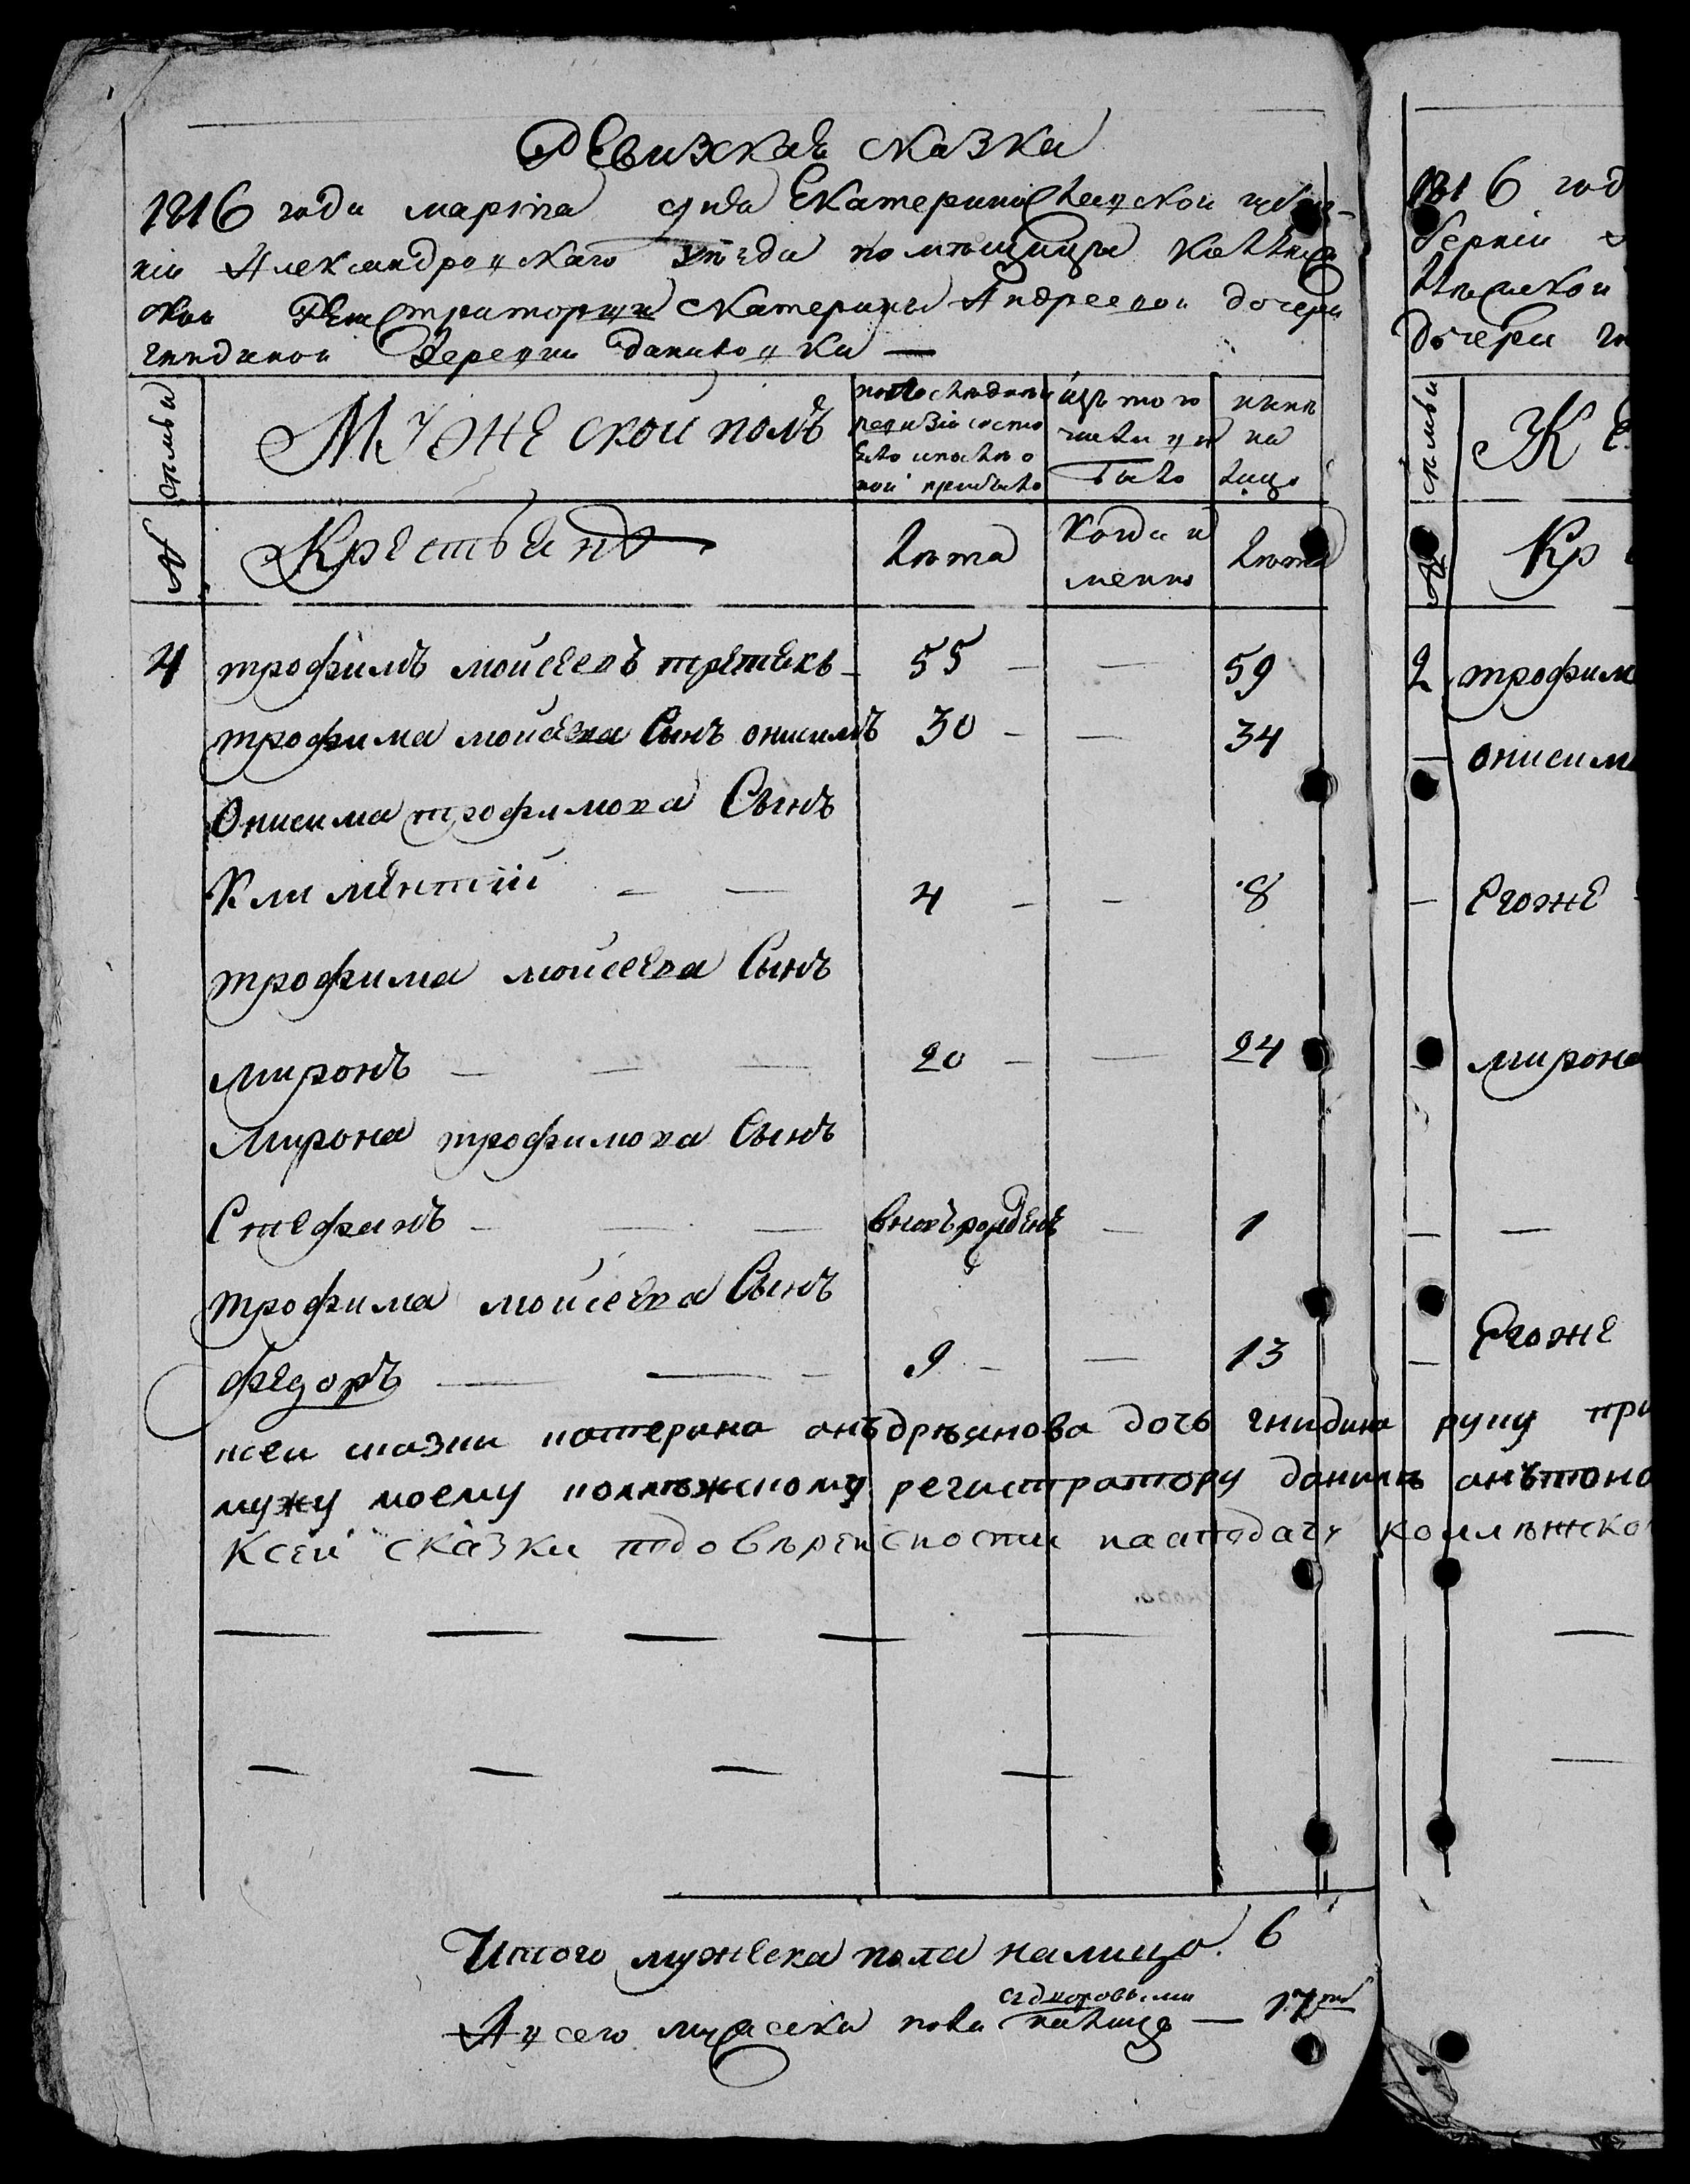 Ревизская сказка
1816 года марта дня Екатеринославской губер-
нии Александровскаго уѣзда помѣщицы коллежс
кой Регистраторши Катерины Андреевой дочери
гнидиной деревни даниловки —
семьи
Мужеской полъ
по последней ревизіи состо яло и послѣ о ной прибыло
изъ того числа вы было
нынѣ на лицо
№
Крестьянъ
лѣта
Когда и менно
лѣта
4 трофимъ мойсеевъ 55 — — 59
трофима мойсеева Сынъ онисимъ 30 — — 34
Онисима трофимова Сынъ
Климентій — — 4 — — 8
трофима мойсеева Сынъ
миронъ — — — 20 — — 24
Мирона трофимова Сынъ
Стефанъ — — — вновьрожденъ — 1
трофима мойсеева Сынъ
федоръ — — — 9 — — 13
ксеи сказки катерина анъдрѣянова дочь гнидина руку при
мужу моему коллѣжскому регистратору данилѣ анътоно
Ксеи сказки подовѣренности наподачу коллѣжско
Итого мужеска пола налицо. 6
А всего мужеска пола здворовыми налицо — 17
1816 год
берніи
дочери
семьи
Же
№
Кр
2 трофим
— онисим
— Егоже
— мирона
— —
— Егоже